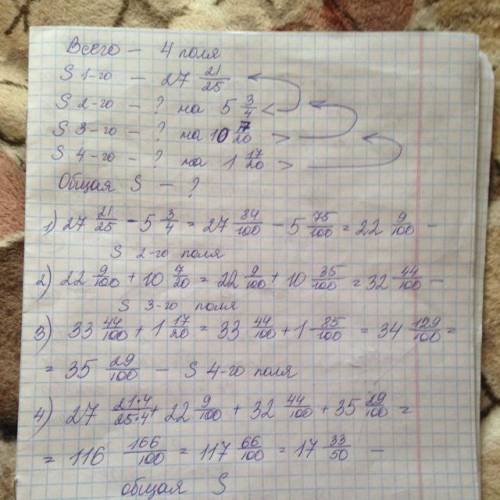 Всего — 4 поля
S 1-го — 27 21/25
S 2-го — ? на 5 3/4 <
S 3-го — ? на 10 7/20 >
S 4-го — ? на 1 17/20 >
Общая S — ?
1) 27 21/25 - 5 3/4 = 27 84/100 - 5 75/100 = 22 9/100 —
S 2-го поля
2) 22 9/100 + 10 7/20 = 22 9/100 + 10 35/100 = 32 44/100 —
S 3-го поля
3) 33 44/100 + 1 17/20 = 33 44/100 + 1 85/100 = 34 129/100 =
= 35 29/100 — S 4-го поля
4) 27 21·4/25·4 + 22 9/100 + 32 44/100 + 35 29/100 =
= 116 166/100 = 117 66/100 = 17 33/50 —
общая S